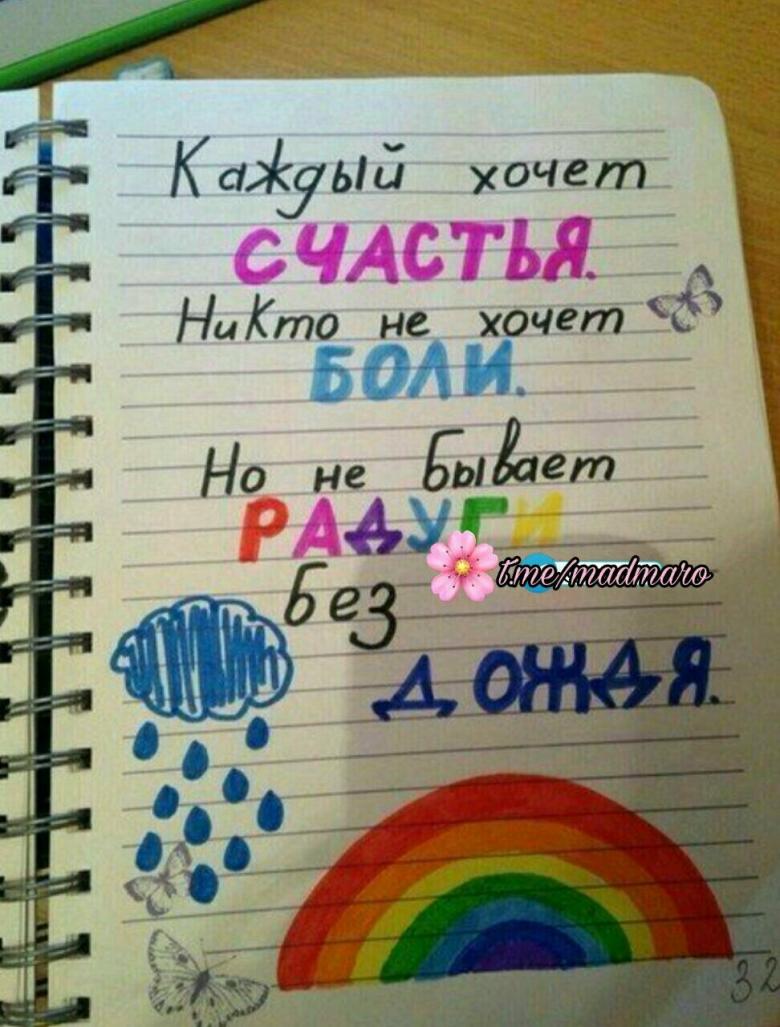 Каждый хочет
СЧАСТЬЯ.
Никто не хочет
БОЛИ.
Но не бывает
РАДУГИ
t.me/madmaro
без
ДОЖДЯ.
32